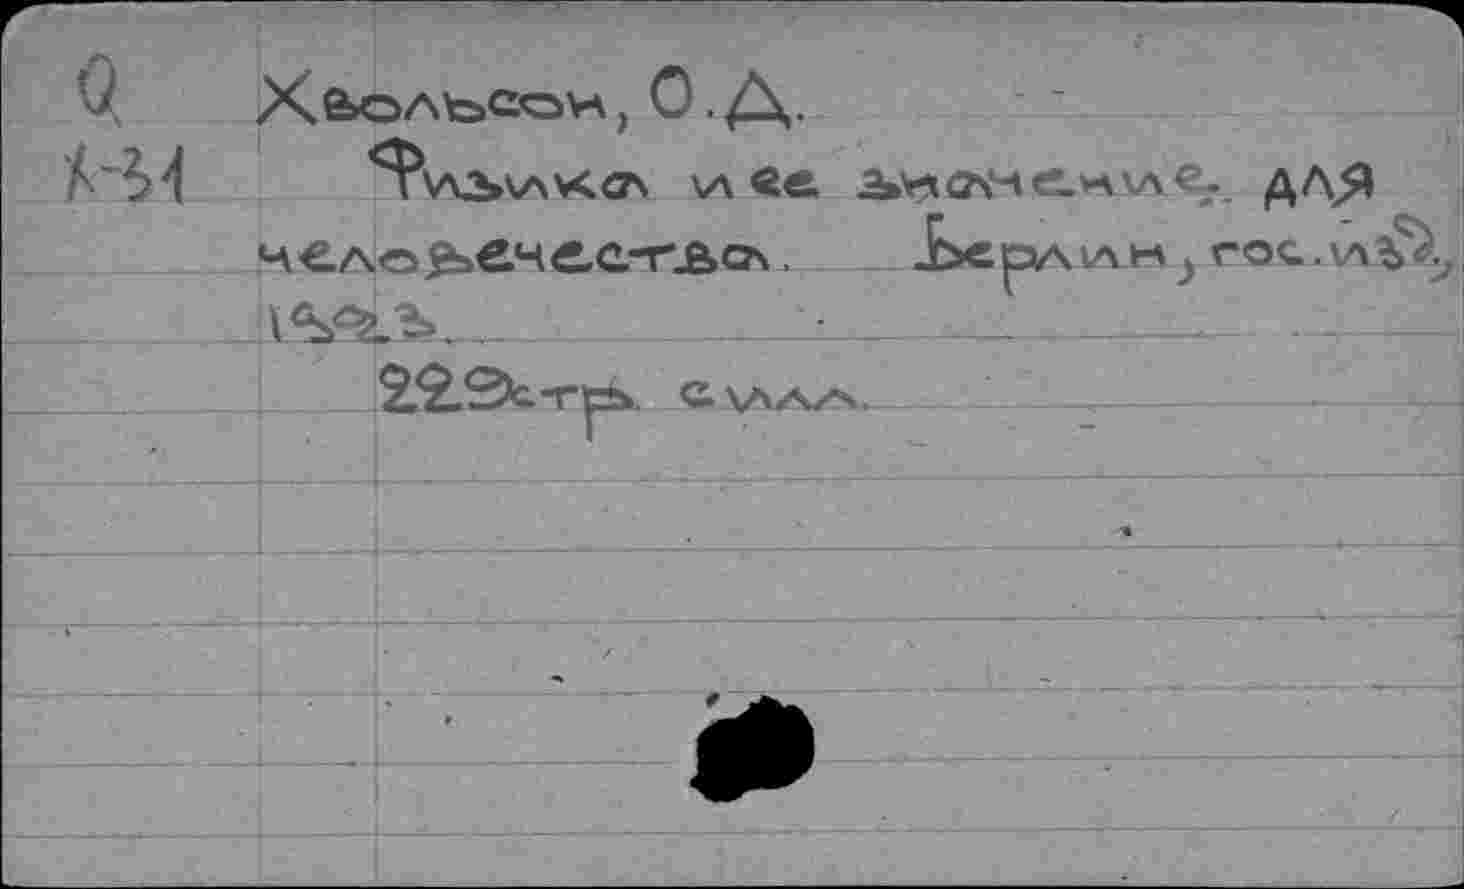 Q Хвольсон, О.Д.
Физика и ее значение для
человечества. Берлин, гос. изд.,
1923.
222стр. с илл.